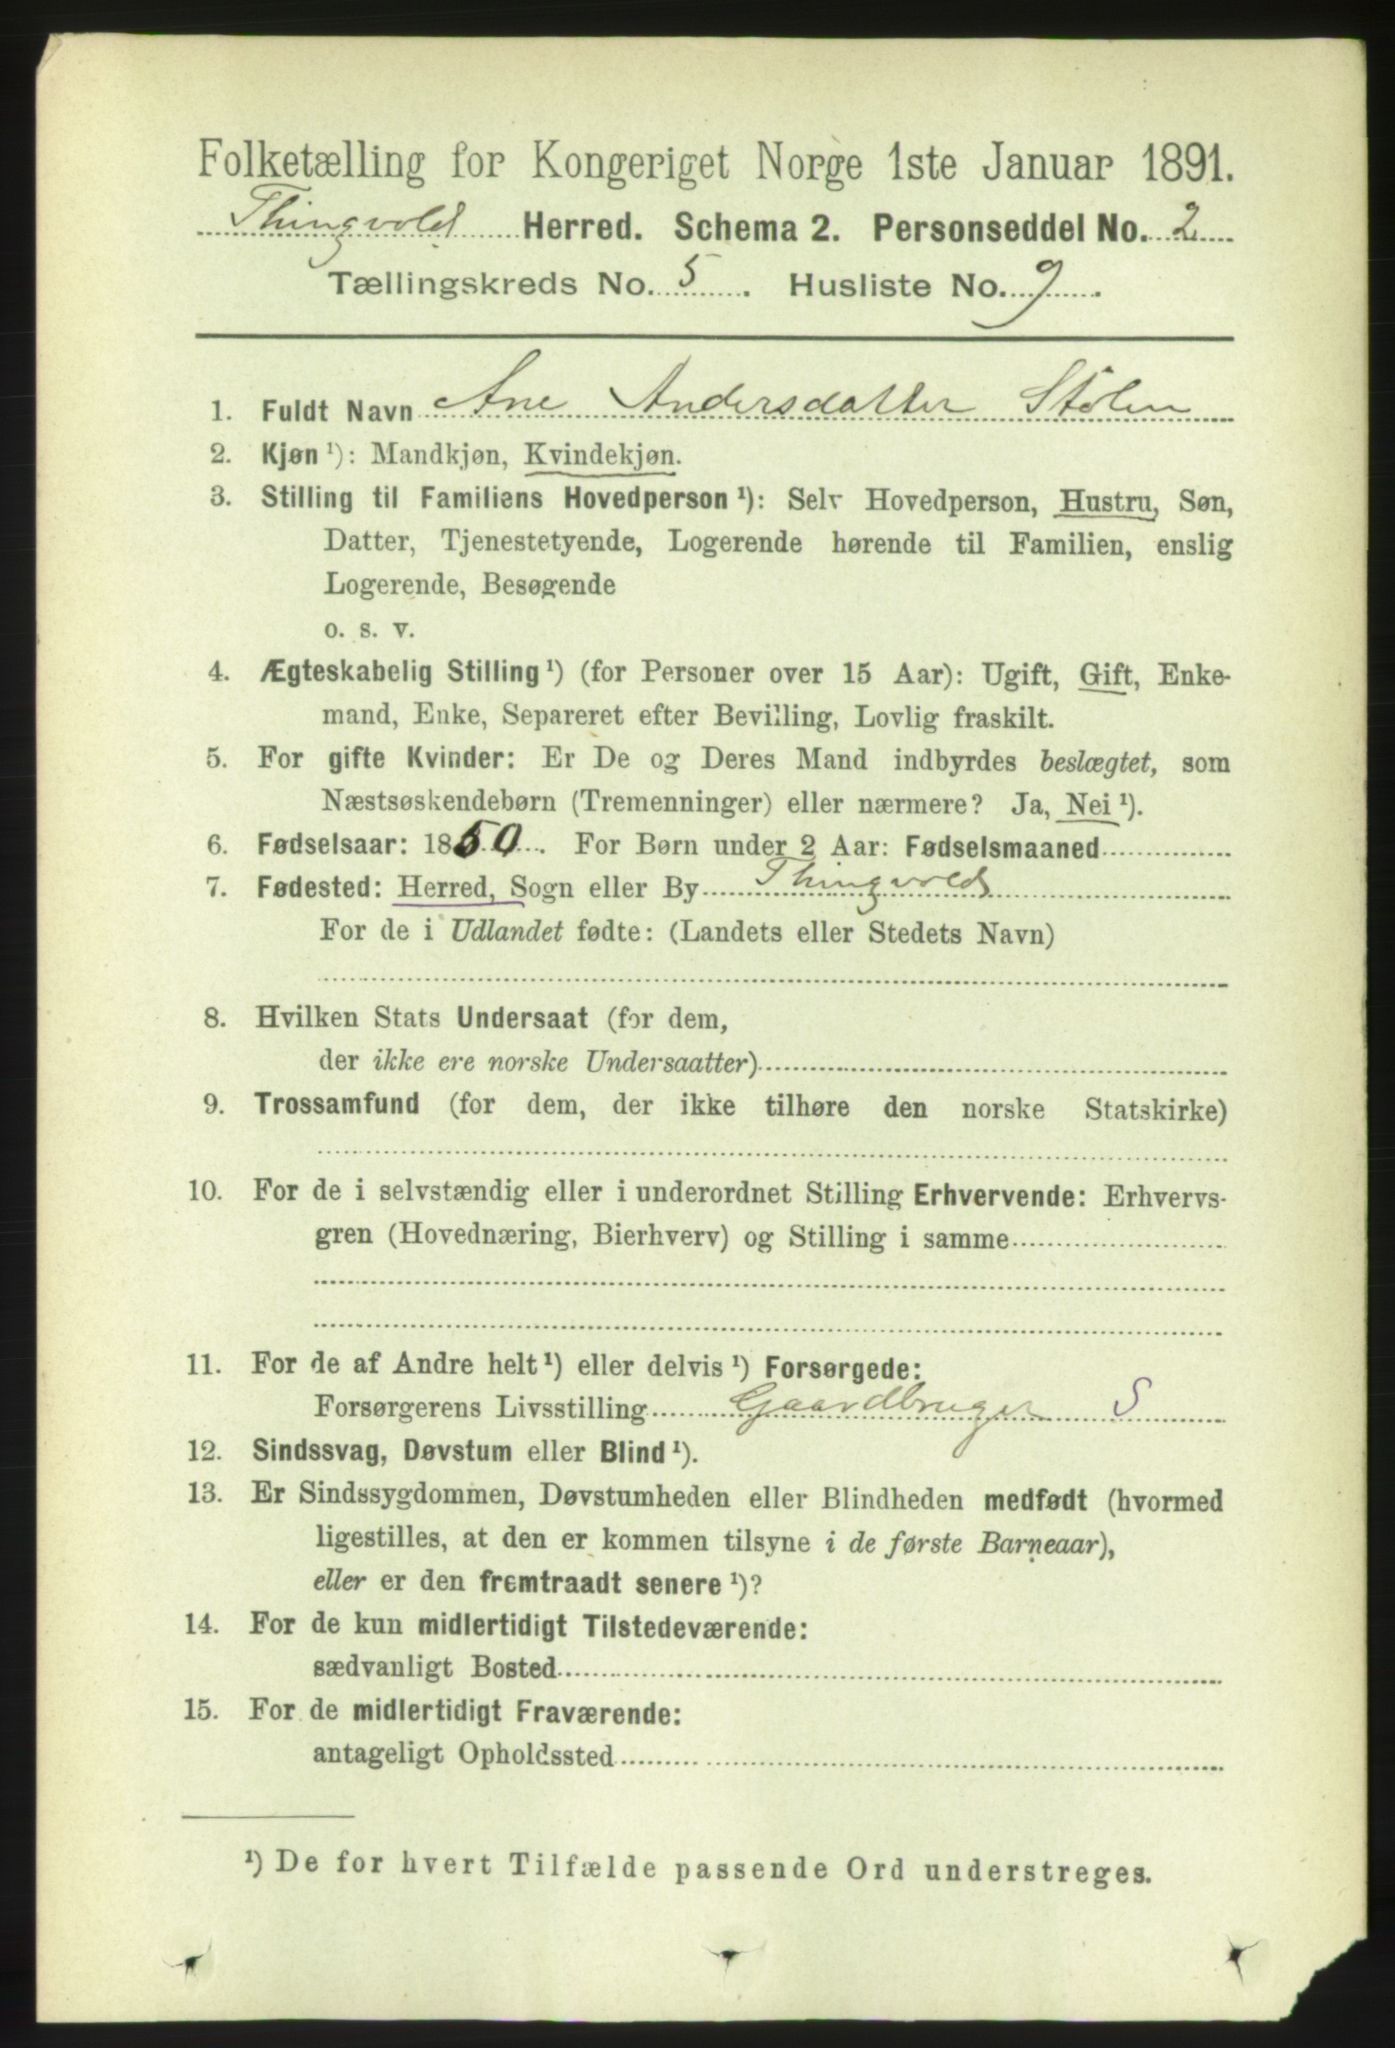 Folketælling for Kongeriget Norge 1ste Januar 1891.
Thingvold Herred. Schema 2. Personseddel No. 2
Tællingskreds No. 5. Husliste No. 9.
1. Fuldt Navn Ane Andersdatter Stölen
2. Kjøn ¹): Mandkjøn, Kvindekjøn.
3. Stilling til Familiens Hovedperson ¹): Selv Hovedperson, Hustru, Søn,
Datter, Tjenestetyende, Logerende hørende til Familien, enslig
Logerende, Besøgende
o. s. v.
4. Ægteskabelig Stilling ¹) (for Personer over 15 Aar): Ugift, Gift, Enke-
mand, Enke, Separeret efter Bevilling, Lovlig fraskilt.
5. For gifte Kvinder: Er De og Deres Mand indbyrdes beslægtet, som
Næstsøskendebørn (Tremenninger) eller nærmere? Ja, Nei ¹).
6. Fødselsaar: 1850. For Børn under 2 Aar: Fødselsmaaned
7. Fødested: Herred, Sogn eller By Thingvold
For de i Udlandet fødte: (Landets eller Stedets Navn)
8. Hvilken Stats Undersaat (for dem,
der ikke ere norske Undersaatter)
9. Trossamfund (for dem, der ikke tilhøre den norske Statskirke)
10. For de i selvstændig eller i underordnet Stilling Erhvervende: Erhvervs-
gren (Hovednæring, Bierhverv) og Stilling i samme
11. For de af Andre helt ¹) eller delvis ¹) Forsørgede:
Forsørgerens Livsstilling Gaardbruger S
12. Sindssvag, Døvstum eller Blind ¹).
13. Er Sindssygdommen, Døvstumheden eller Blindheden medfødt (hvormed
ligestilles, at den er kommen tilsyne i de første Barneaar),
eller er den fremtraadt senere ¹)?
14. For de kun midlertidigt Tilstedeværende:
sædvanligt Bosted
15. For de midlertidigt Fraværende:
antageligt Opholdssted
¹) De for hvert Tilfælde passende Ord understreges.